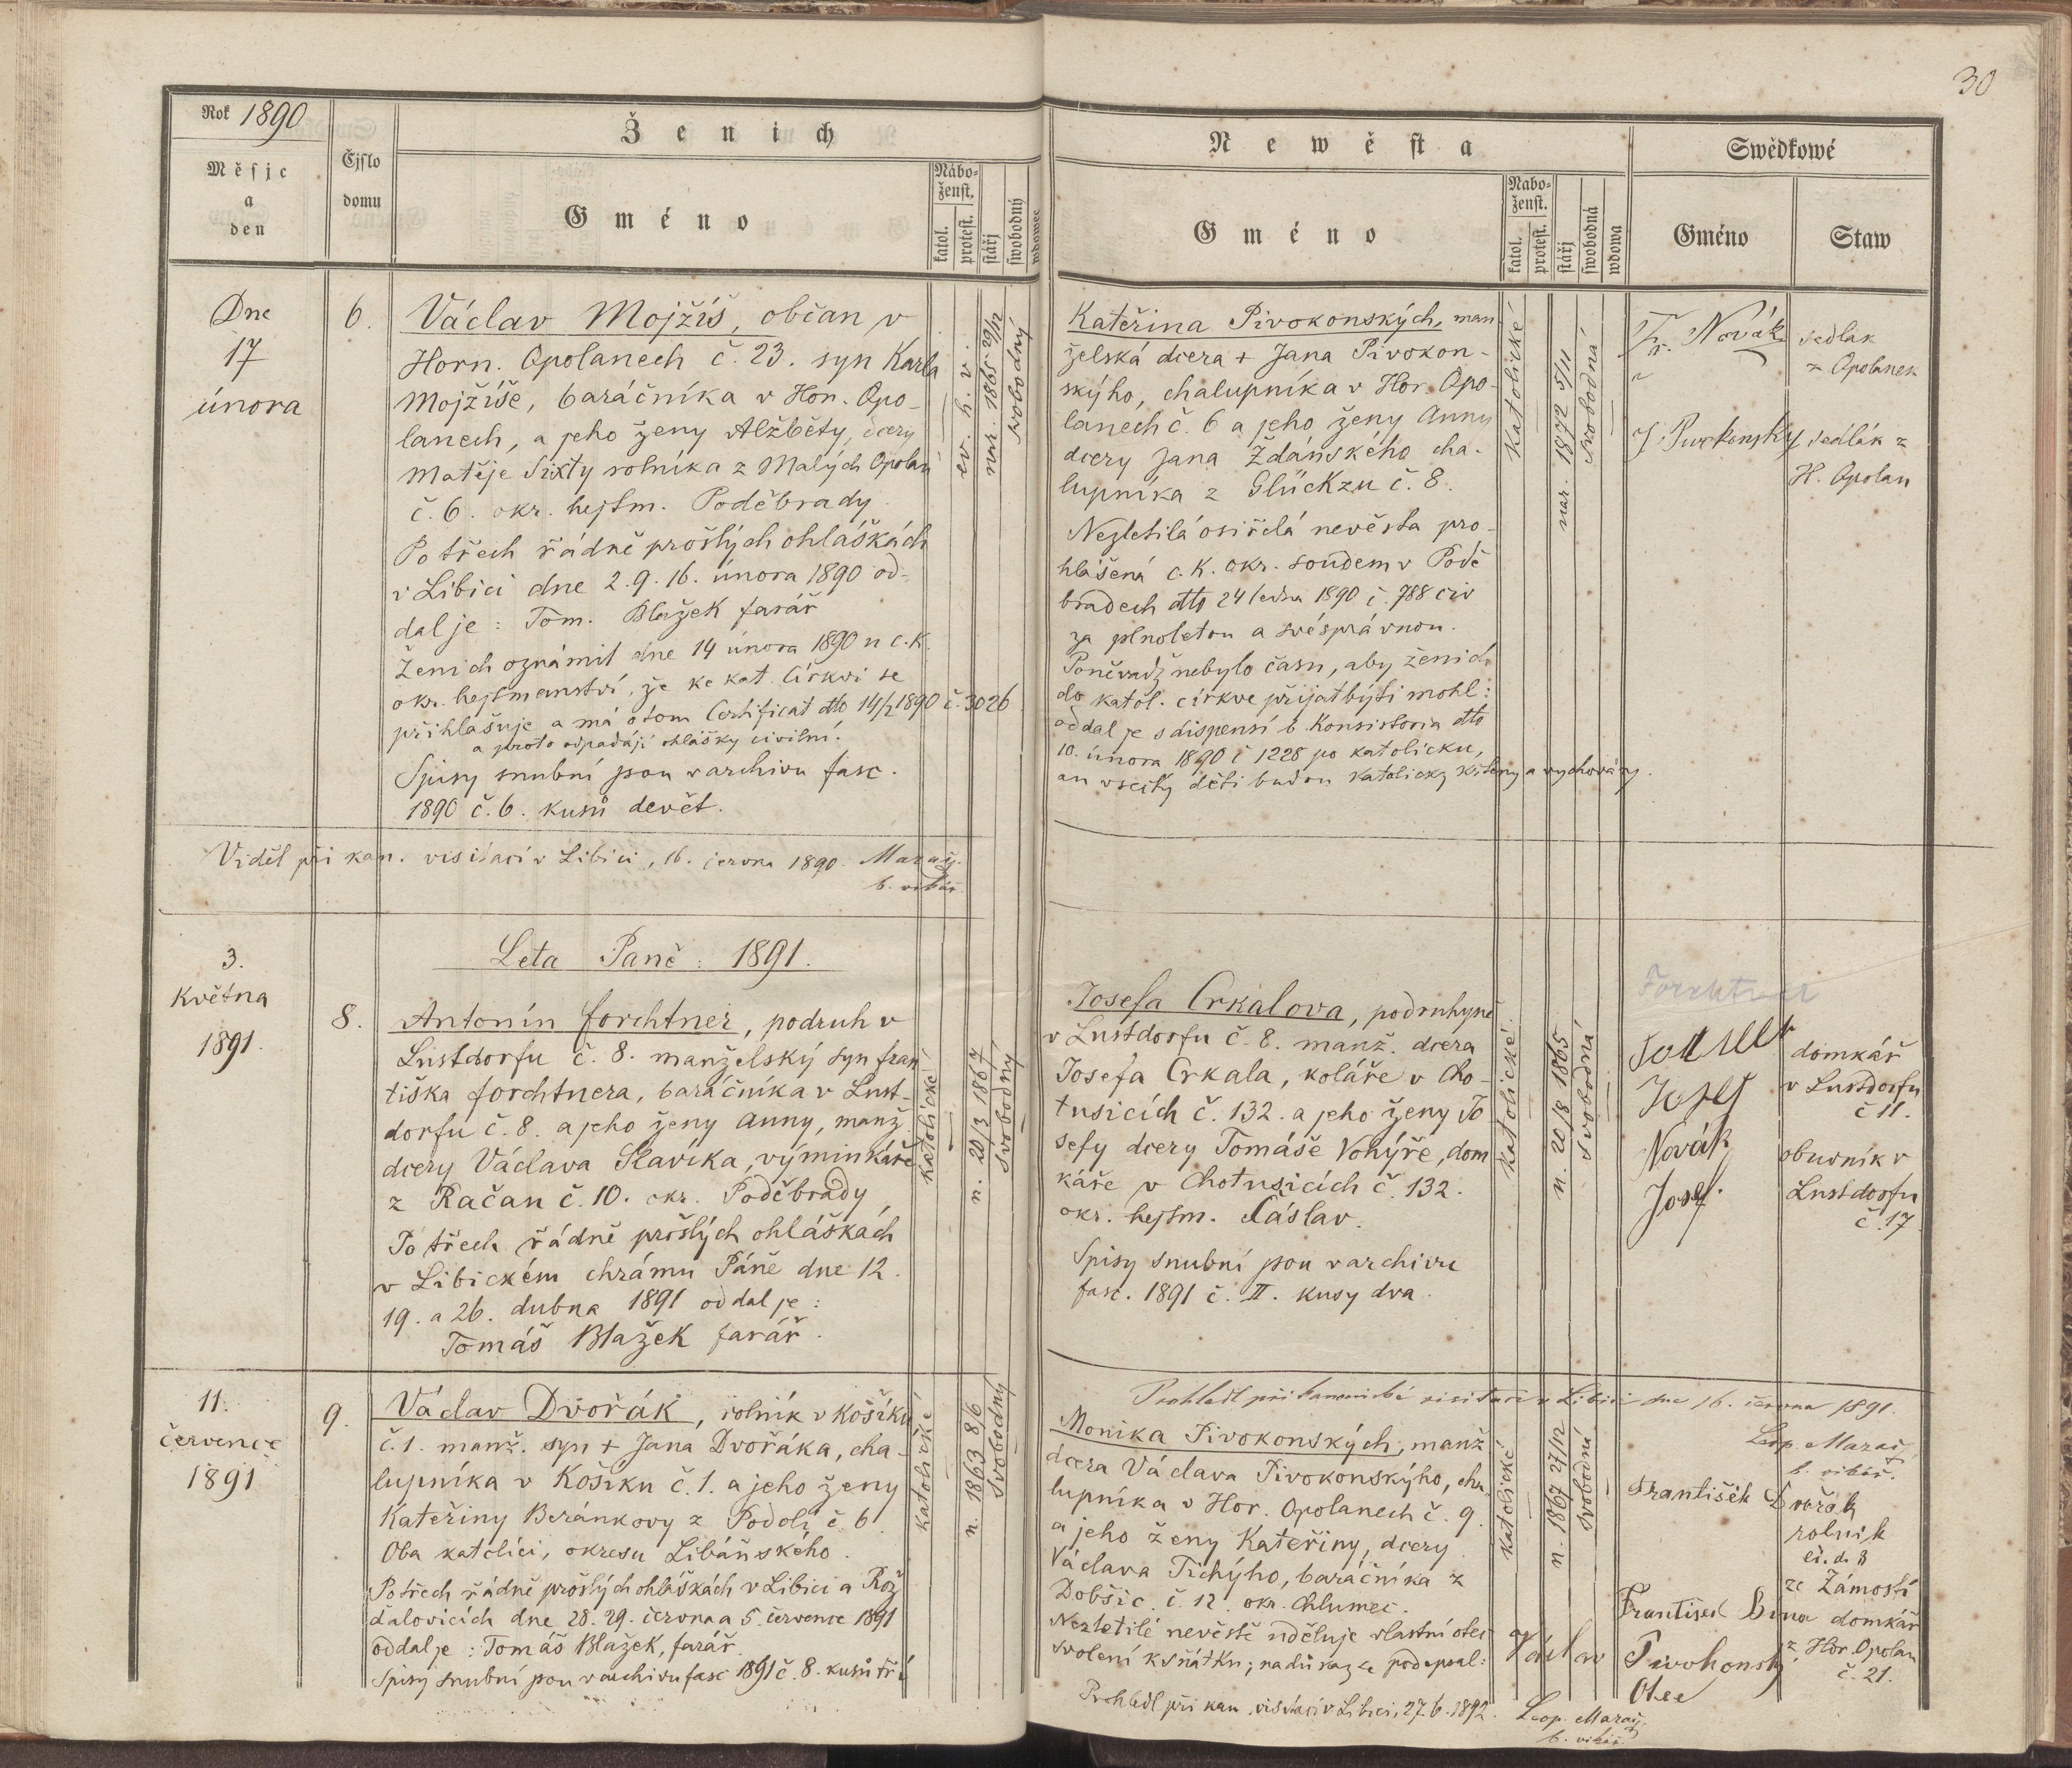 30
Rok 1890
Měsjc
a
den
Čjslo
domu
Ženich
Gméno
Nábo-
ženst.
katol.
protest.
stářj
swobodný
wdowec
Newěsta
Gméno
Nabo-
ženst.
katol.
protest.
stářj
swobodná
wdowa
Swědkowé
Gméno
Staw
Dne
17
února
6.
Václav Mojžíš, občan v
Horn. Opolanech č. 23. syn Karla
Mojžíše, baráčníka v Hor. Opo-
lanech, a jeho ženy Alžběty, dcery
Matěje Sixty rolníka z Malých Opolan
č. 6. okr. hejtm. Poděbrady.
Po třech řádně prošlých ohláškách
v Libici dne 2. 9. 16. února 1890 od-
dal je: Tom. Blažek farář
Ženich oznámil dne 14 února 1890 u c. k.
okr. hejtmanství, že ke kat. církvi se
přihlašuje a má o tom Certificat dto 14/2 1890 č. 3026
a proto odpadají ohlášky civilní.
Spisy snubní jsou v archivu fasc.
1890 č. 6. kusů devět.
ev. h. v.
nar. 1865 29/12
svobodný
Kateřina Pivokonských, man-
želská dcera + Jana Pivokon-
ského, chalupníka v Hor. Opo-
lanech č. 6 a jeho ženy Anny
dcery Jana Ždánského cha-
lupníka z Glückzu č. 8.
Nezletilá osiřelá nevěsta pro-
hlášená c. k. okr. soudem v Podě
bradech dto 24 ledna 1890 č. 788 civ
za plnoletou a svéprávnou.
Poněvadž nebylo času, aby ženich
do katol. církve přijat býti mohl:
oddal je s dispensí b. Konsistoria dto
10. února 1890 č 1228 po katolicku,
an vsecky děti budou katolicky křtěny a vychovány.
katolické
nar. 1872 5/11
svobodná
Fr. Novák
sedlak
z Opolanek
sedlák z
H. Opolan
Viděl při kan. visitaci v Libici, 16. června 1890. Maraž.
b. vikář.
Leta Paně: 1891.
3.
Května
1891.
8.
Antonín Forchtner, podruh v
Lustdorfu č. 8. manželský syn Fran
tiška Forchtnera, baráčníka v Lust-
dorfu č. 8. a jeho ženy Anny, manž.
dcery Václava Slavíka, výminkáře
z Račan č. 10. okr. Poděbrady
Po třech řádně prošlých ohláškách
v Libickém chrámu Páně dne 12.
19. a 26. dubna 1891 oddal je:
Tomáš Blažek farář.
katolické
n. 20/3 1867
svobodný
Josefa Crkalova, podruhyně
v Lustdorfu č. 8. manž. dcera
Josefa Crkala, koláře v Cho-
tusicích č. 132. a jeho ženy Jo
sefy dcery Tomáše Vohýře, dom
káře v Chotusicích č. 132.
okr. hejtm. Čáslav.
Spisy snubní jsou v archivu
fasc. 1891 č. II. kusy dva.
katolické.
n. 20/8 1865
svobodná
Josef
domkář
v Lustdorfu
č 11.
Novák
Josef.
obuvník v
Lustdorfu
č. 17.
11.
července
1891
9.
Václav Dvořák, rolník v Košíku
č. 1. manž. syn + Jana Dvořáka, cha-
lupníka v Košíku č. 1. a jeho ženy
Kateřiny Beránkovy z Podolí č. 6.
Oba katolíci, okresu Libáňského.
Po třech řádně prošlých ohláškách v Libici a Rož
ďalovicích dne 28. 29. června a 5. července 1891
oddal je: Tomáš Blažek, farář.
Spisy snubní jsou v archivu fasc 1891 č. 8. kusů tři
katolické
n. 1863 8/6
svobodný
Prohledl při kanonické visitaci v Libici dne 16. června 1891.
Leop. Maraž,
b. vikář.
Monika Pivokonských, manž
dcera Václava Pivokonskýho, cha
lupníka v Hor. Opolanech č. 9.
a jeho ženy Kateřiny, dcery
Václava Tichýho, baráčníka z
Dobšic č. 12. okr. Chlumec.
Nezletilé nevěstě uděluje vlastní otec
svolení k sňatku; na důkaz se podepsal:
Václav Pivokonský
Otec
katolické
n. 1867 27/12
svobodná
František Dvořák
rolnik
č. d. 8
ze Zámostí
domkář
z Hor. Opolan
č. 21.
Prohledl při kan. visitaci v Libici, 27. 6. 1892. Leop. Maraž.
b. vikář.